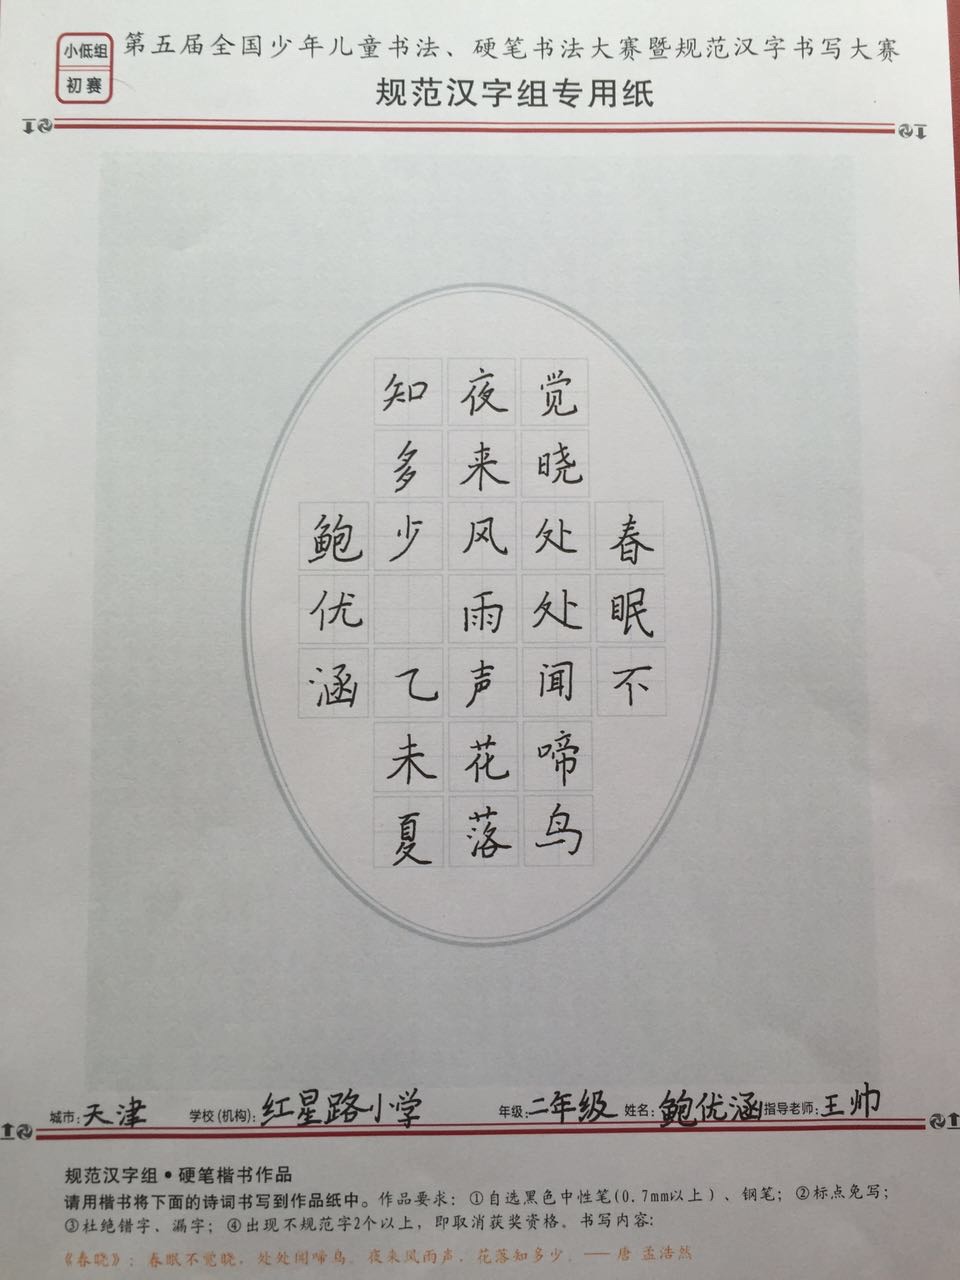 小低组
初赛
第五届全国少年儿童书法、硬笔书法大赛暨规范汉字书写大赛
规范汉字组专用纸
春眠不
觉晓处处闻啼鸟
夜来风雨声花落
知多少 乙未夏
鲍优涵
城市:天津 学校(机构):红星路小学 年级:二年级 姓名:鲍优涵 指导老师:王帅
规范汉字组•硬笔楷书作品
请用楷书将下面的诗词书写到作品纸中。作品要求:①自选黑色中性笔(0.7mm以上)、钢笔;②标点免写;
③杜绝错字、漏字;④出现不规范字2个以上,即取消获奖资格。书写内容:
《春晓》:春眠不觉晓,处处闻啼鸟。夜来风雨声,花落知多少。——唐 孟浩然